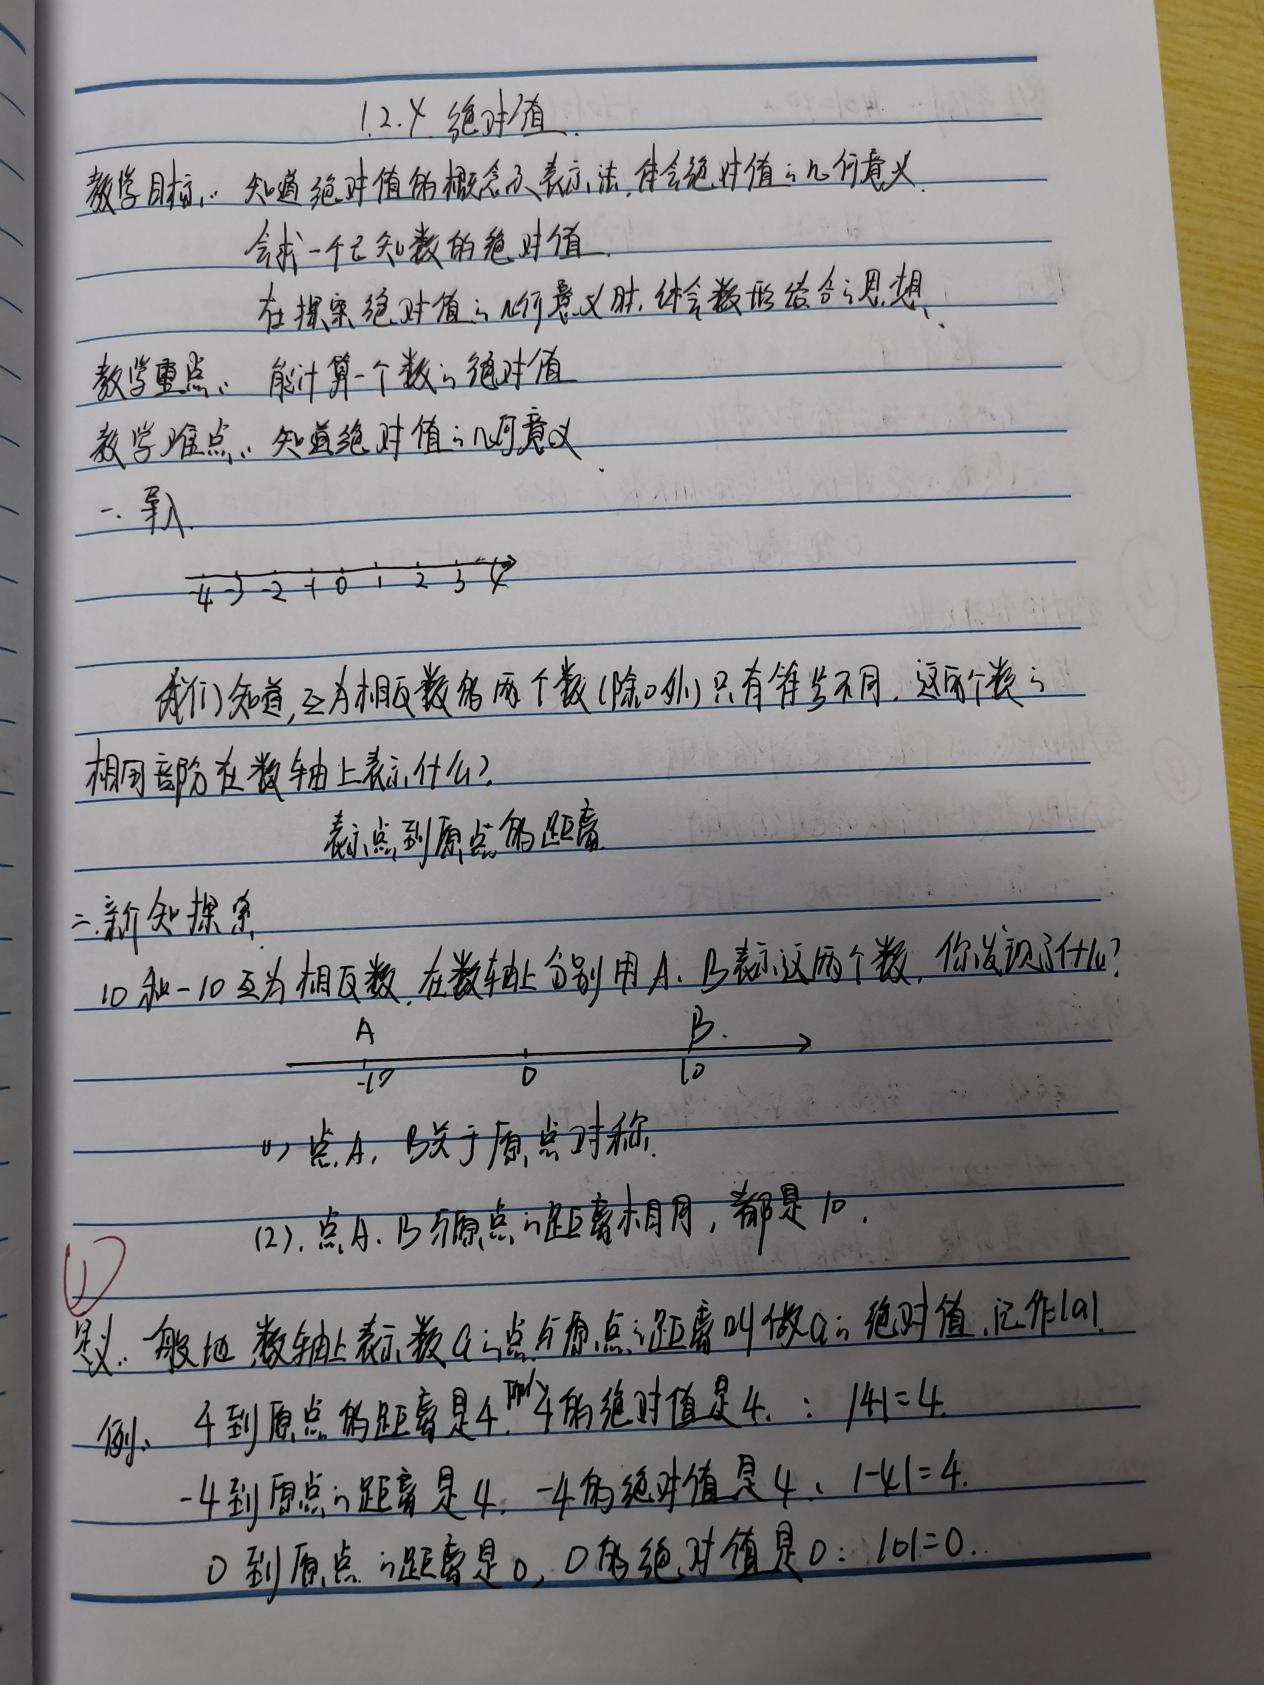 1.2.4 绝对值.
教学目标: 知道绝对值的概念及表示法,体会绝对值的几何意义.
会求一个已知数的绝对值.
在探索绝对值的几何意义时,体会数形结合的思想.
教学重点: 能计算一个数的绝对值
教学难点: 知道绝对值的几何意义.
一. 导入.
-4 -3 -2 -1 0 1 2 3 4
我们知道,互为相反数的两个数(除0外)只有符号不同,这两个数的
相同部分在数轴上表示什么?
表示点到原点的距离.
二.新知探索.
10和-10互为相反数,在数轴上分别用A、B表示这两个数,你发现了什么?
A B.
-10 0 10
(1) 点A、B关于原点对称.
(2). 点A、B与原点的距离相同,都是10.
①
定义: 一般地,数轴上表示数a的点与原点的距离叫做a的绝对值,记作|a|.
例: 4到原点的距离是4,所以4的绝对值是4.: |4|=4.
-4到原点的距离是4, -4的绝对值是4、|-4|=4.
0到原点的距离是0, 0的绝对值是0: |0|=0.